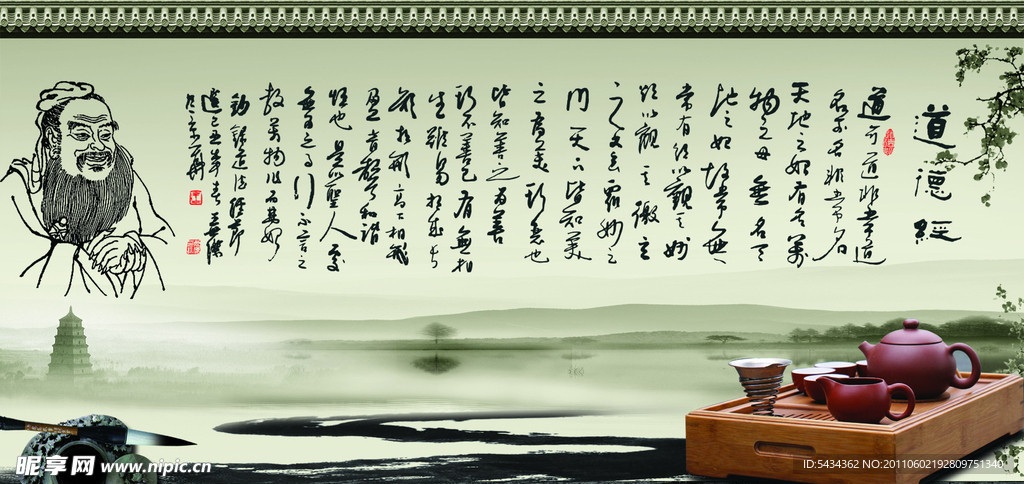 道德經
道可道非常道
名可名非常名
天地之始有名萬
物之母無名
地之始故常無
常有欲以觀其妙
欲以觀其徼
之又玄衆妙之
門天下皆知美
之為美斯惡也
皆知善之為善
斯不善已有無相
生難易相成長
形高下相
盈音聲和
恒也是聖人處
無為之事行不言之
教萬物作而
道德經節
選己丑年春
昵享网 www.nipic.cn
ID:5434362 NO:20110602192809751340